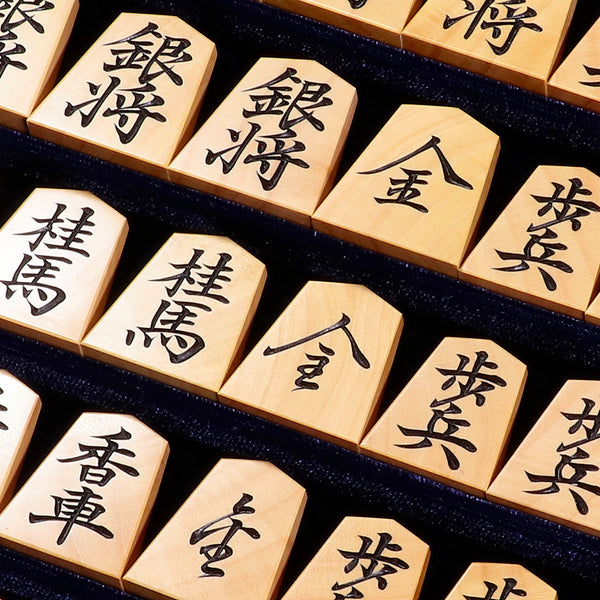 銀将
銀将
金
歩兵
桂馬
桂馬
全
歩兵
歩兵
香車
金
歩兵
歩